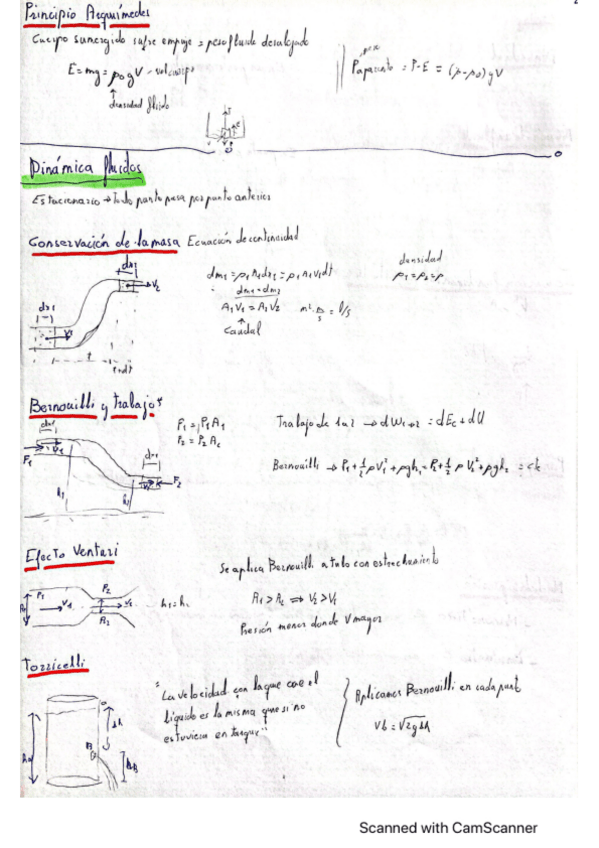 Principio Arquímedes
Cuerpo sumergido sufre empuje = peso fluido desalojado
E = mg = ρ₀gV → vol cuerpo
densidad fluido
peso
Paparente = P-E = (ρ-ρ₀)gV
Dinámica fluidos
Estacionario → todo punto pasa por punto anterior
Conservación de la masa Ecuación de continuidad
dx₁
V₂
dx1
V₁
t
t+dt
dm₁ = ρ₁A₁dx₁ = ρ₁A₁V₁dt
dm₁=dm₂
A₁V₁ = A₁V₂
Caudal
densidad
ρ₁=ρ₂=ρ
Bernouilli y trabajo
dx1
F₁
h₁
dx1
F₂
P₂ = P₂A₂
Trabajo de 1 a 2 → dW₁→₂ = dEc + dU
Bernouilli → P₁+½ρV₁²+ρgh₁=P₂+½ρV₂²+ρgh₂ = ck
Efecto Venturi
P₁
V₁
P₂
V₁
A₂
Se aplica Bernouilli a tubo con estrechamiento
A₁ > A₂ ⟹ V₂ > V₁
Presión menor donde V mayor
Torricelli
Δh
B
hB
"La velocidad con la que cae el
líquido es la misma que si no
estuviera en tanque"
Aplicamos Bernouilli en cada punt
Vb = √2gΔh
Scanned with CamScanner